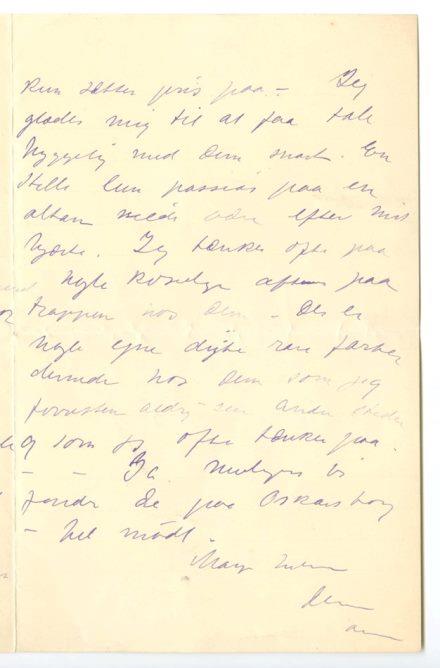 kun sætter pris paa – Jeg
glæder mig til at faa tale
hyggelig med Dem snart. En
stille lun passiar paa en
altan vilde være efter mit
hjerte. Jeg tænker ofte paa
nogle koselige aftner paa
trappen hos Dem – Der er
nogle egne dybe rare farver
dernede hos Dem som jeg
forresten aldrig ser andre steder
og som jeg ofte tænker paa.
– – Ja muligens vi
De paa Oskarsborg
– Vel mødt.
Mange
Deres